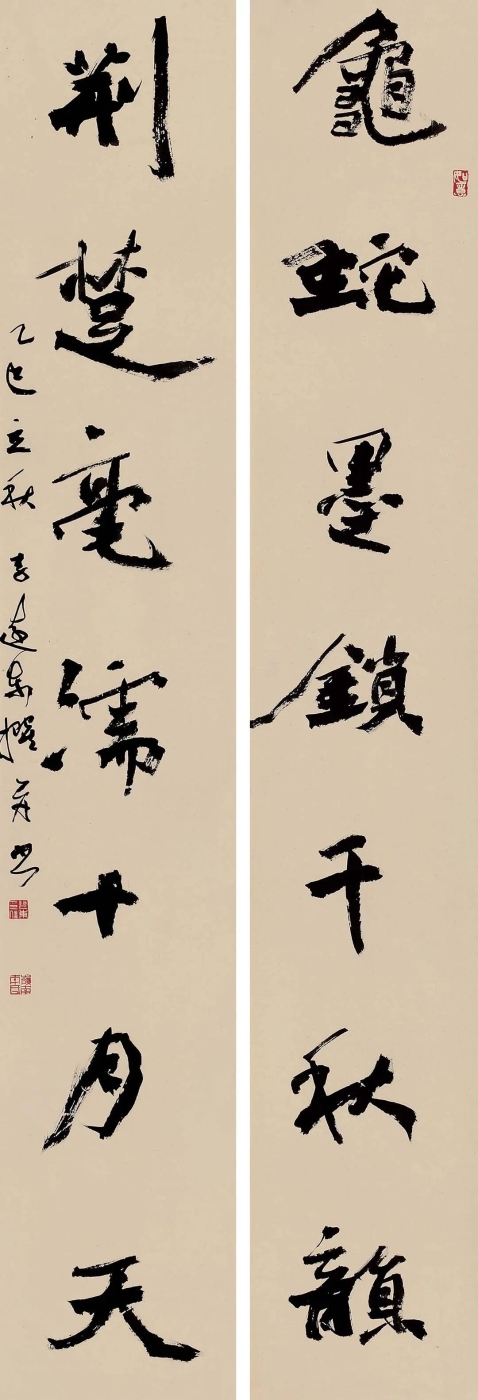 龜蛇墨鎖千秋韻
荊楚毫濡十月天
乙巳立秋 李遠東撰并書